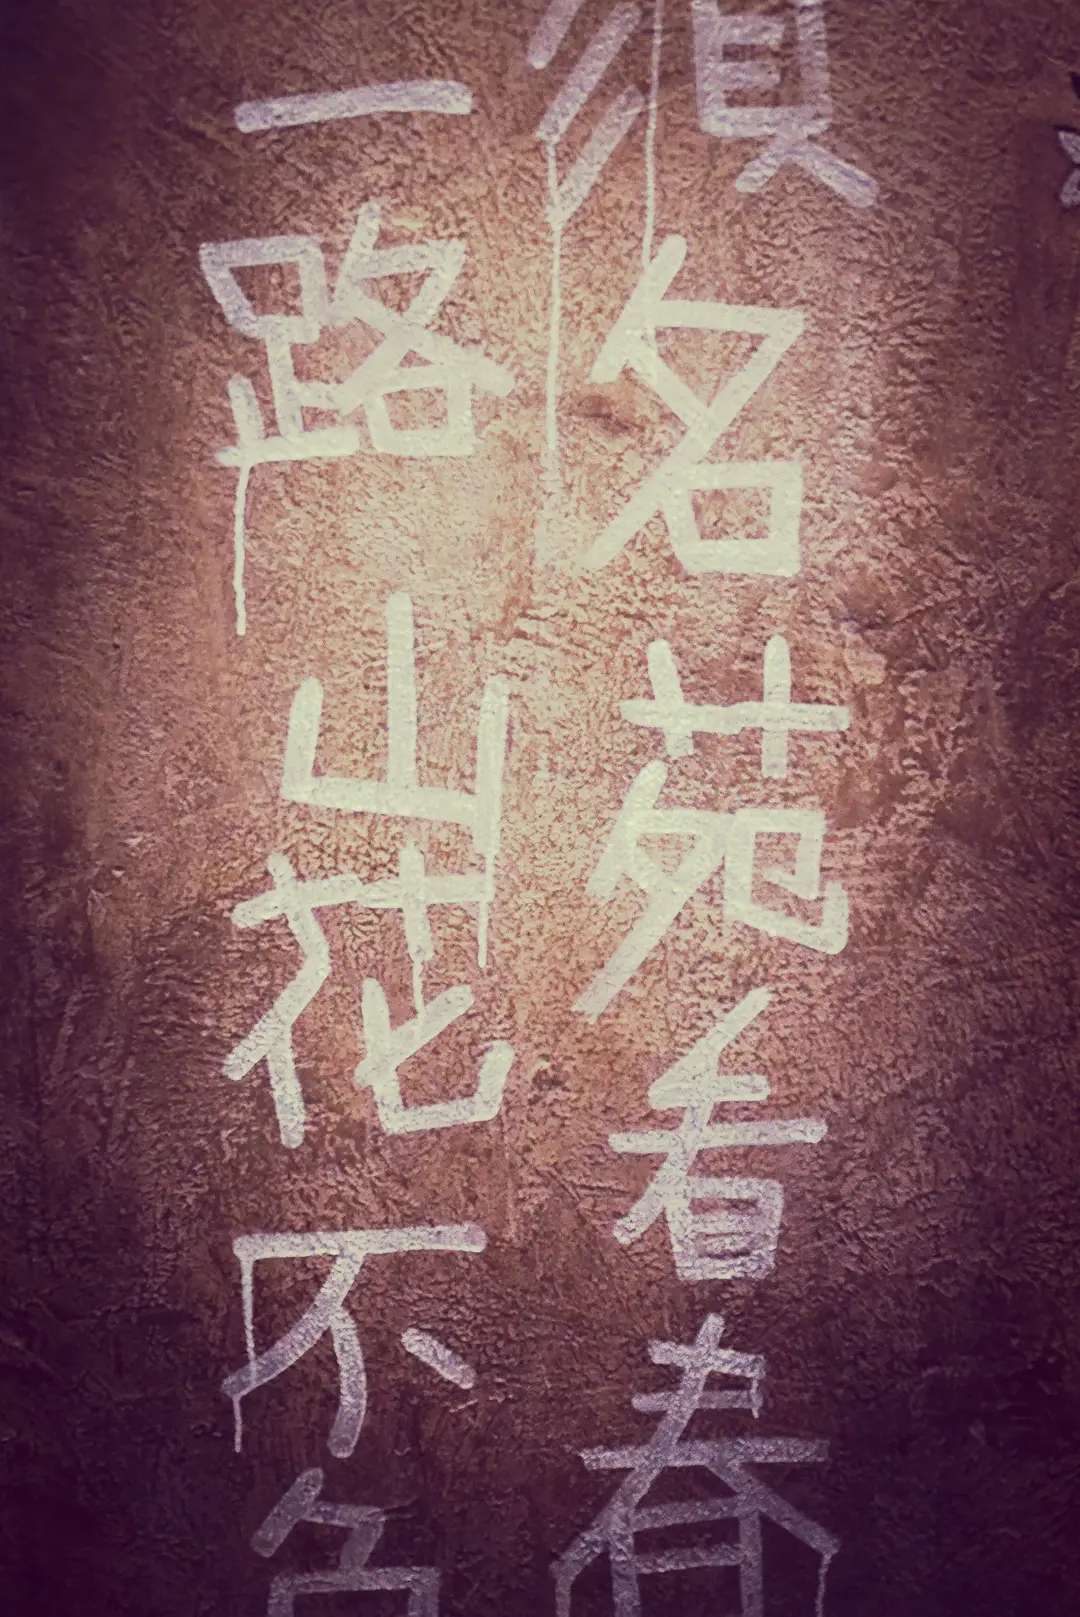 須名苑看春
一路山花不